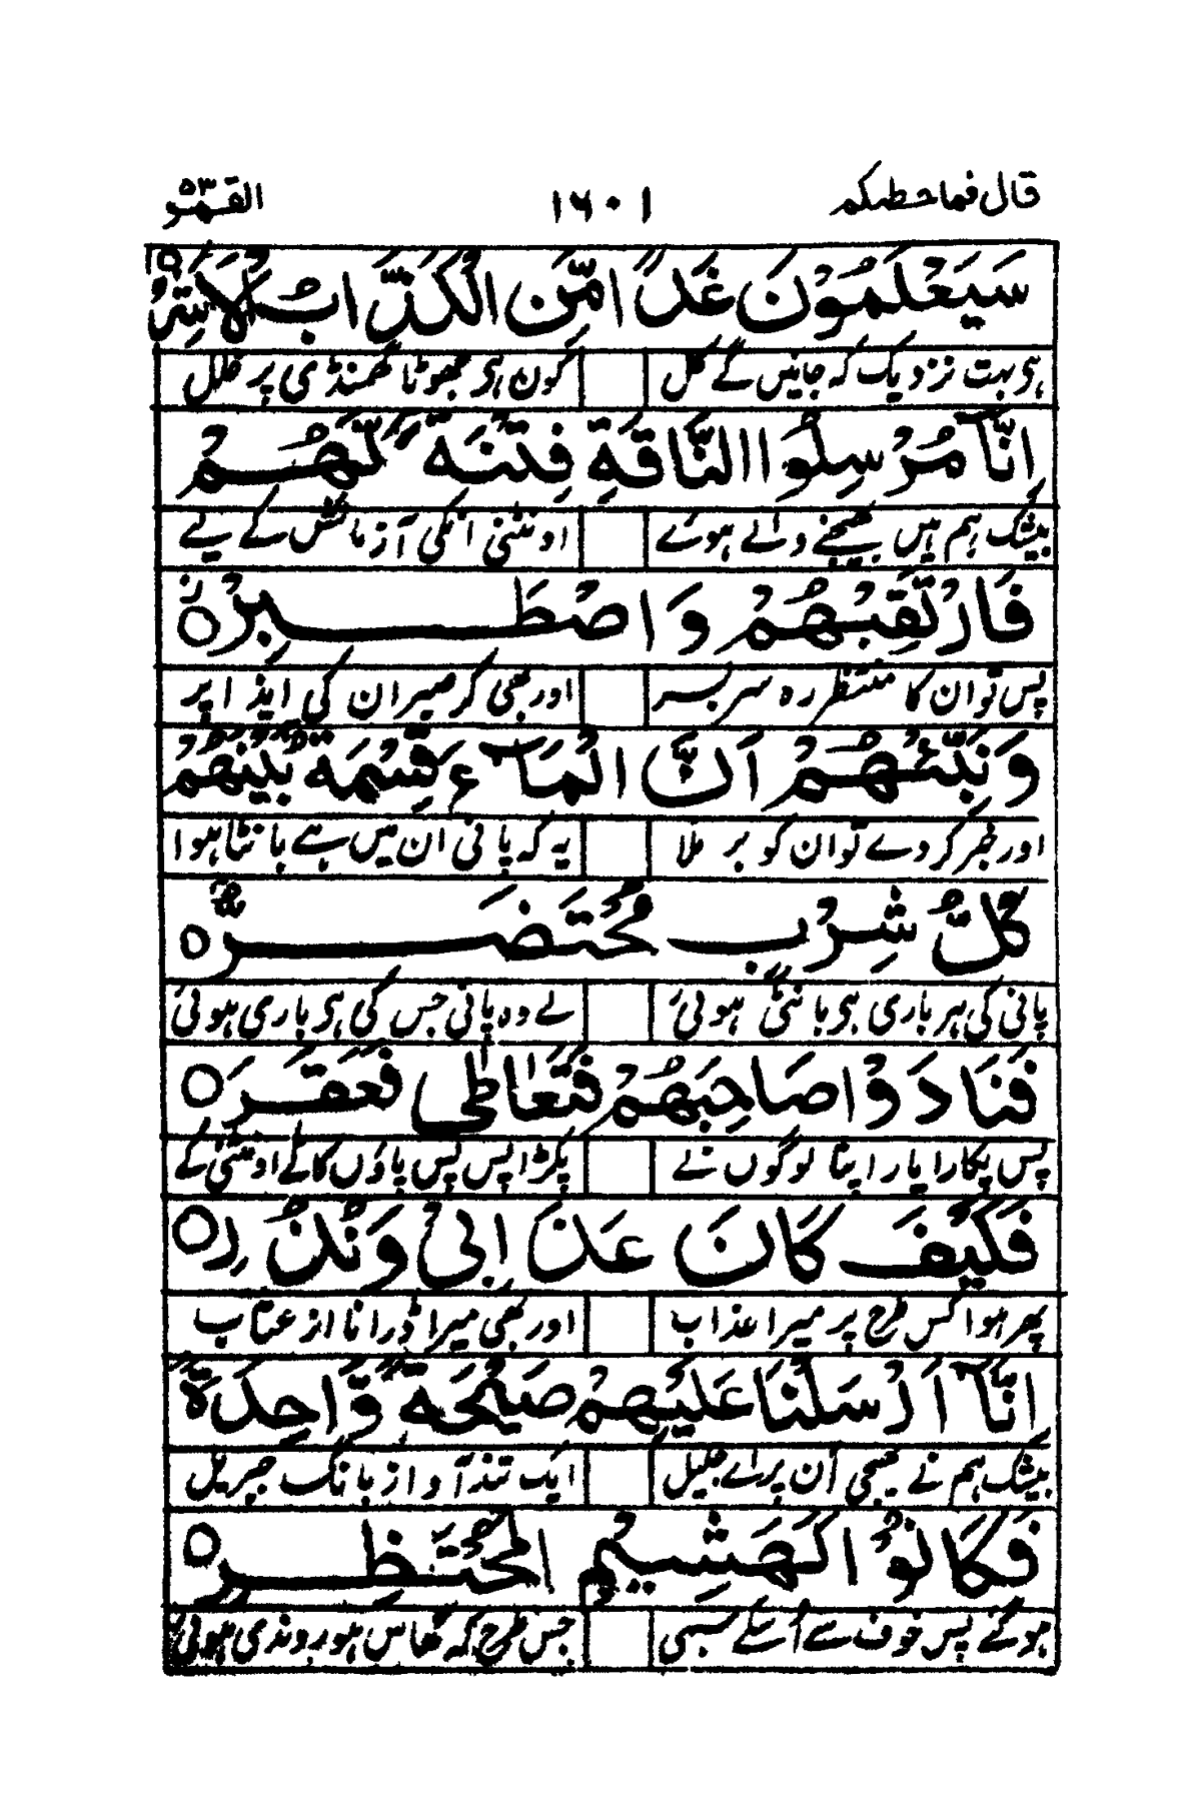 قال فما خطبکم ١٦٠١ القمر ٥٣
سَيَعْلَمُوْنَ غَدًا مَّنِ الْكَذَّابُ الْاَشِرُ
ہی بہت نزدیک کہ جانیں گے کل کون ہی جھوٹا گھمنڈی پر خلل
اِنَّا مُرْسِلُوا النَّاقَةِ فِتْنَةً لَّهُمْ
بیشک ہم ہیں بھیجنے والے ہوئے اونٹنی انکی آزمائش کے لیے
فَارْتَقِبْهُمْ وَاصْطَبِرْ
پس تو ان کا منتظر رہ سر بسر اور بھی کر صبر ان کی ایذا پر
وَنَبِّئْهُمْ اَنَّ الْمَآءَ قِسْمَةٌۢ بَيْنَهُمْ
اور خبر کر دے تو ان کو بر ملا یہ کہ پانی ان میں ہے بانٹا ہوا
كُلُّ شِرْبٍ مُّحْتَضَرٌ
پانی کی ہر باری ہی بانٹی ہوئی لے وہ پانی جس کی ہی باری ہوئی
فَنَادَوْا صَاحِبَهُمْ فَتَعَاطٰى فَعَقَرَ
پس پکارا یار اپنا لوگوں نے پکڑا پس پس پاؤں کاٹے اونٹنی کے
فَكَيْفَ كَانَ عَذَابِيْ وَنُذُرِ
پھر ہوا کس طرح پر میرا عذاب اور بھی میرا ڈرانا از عتاب
اِنَّآ اَرْسَلْنَا عَلَيْهِمْ صَيْحَةً وَّاحِدَةً
بیشک ہم نے بھیجی اُن پر اے خلیل ایک تند آواز بانگ جبریل
فَكَانُوْا كَهَشِيْمِ الْمُحْتَظِرِ
ہو گئے پس خوف سے اُسکے سبھی جس طرح کہ گھاس ہو روندی ہوئی